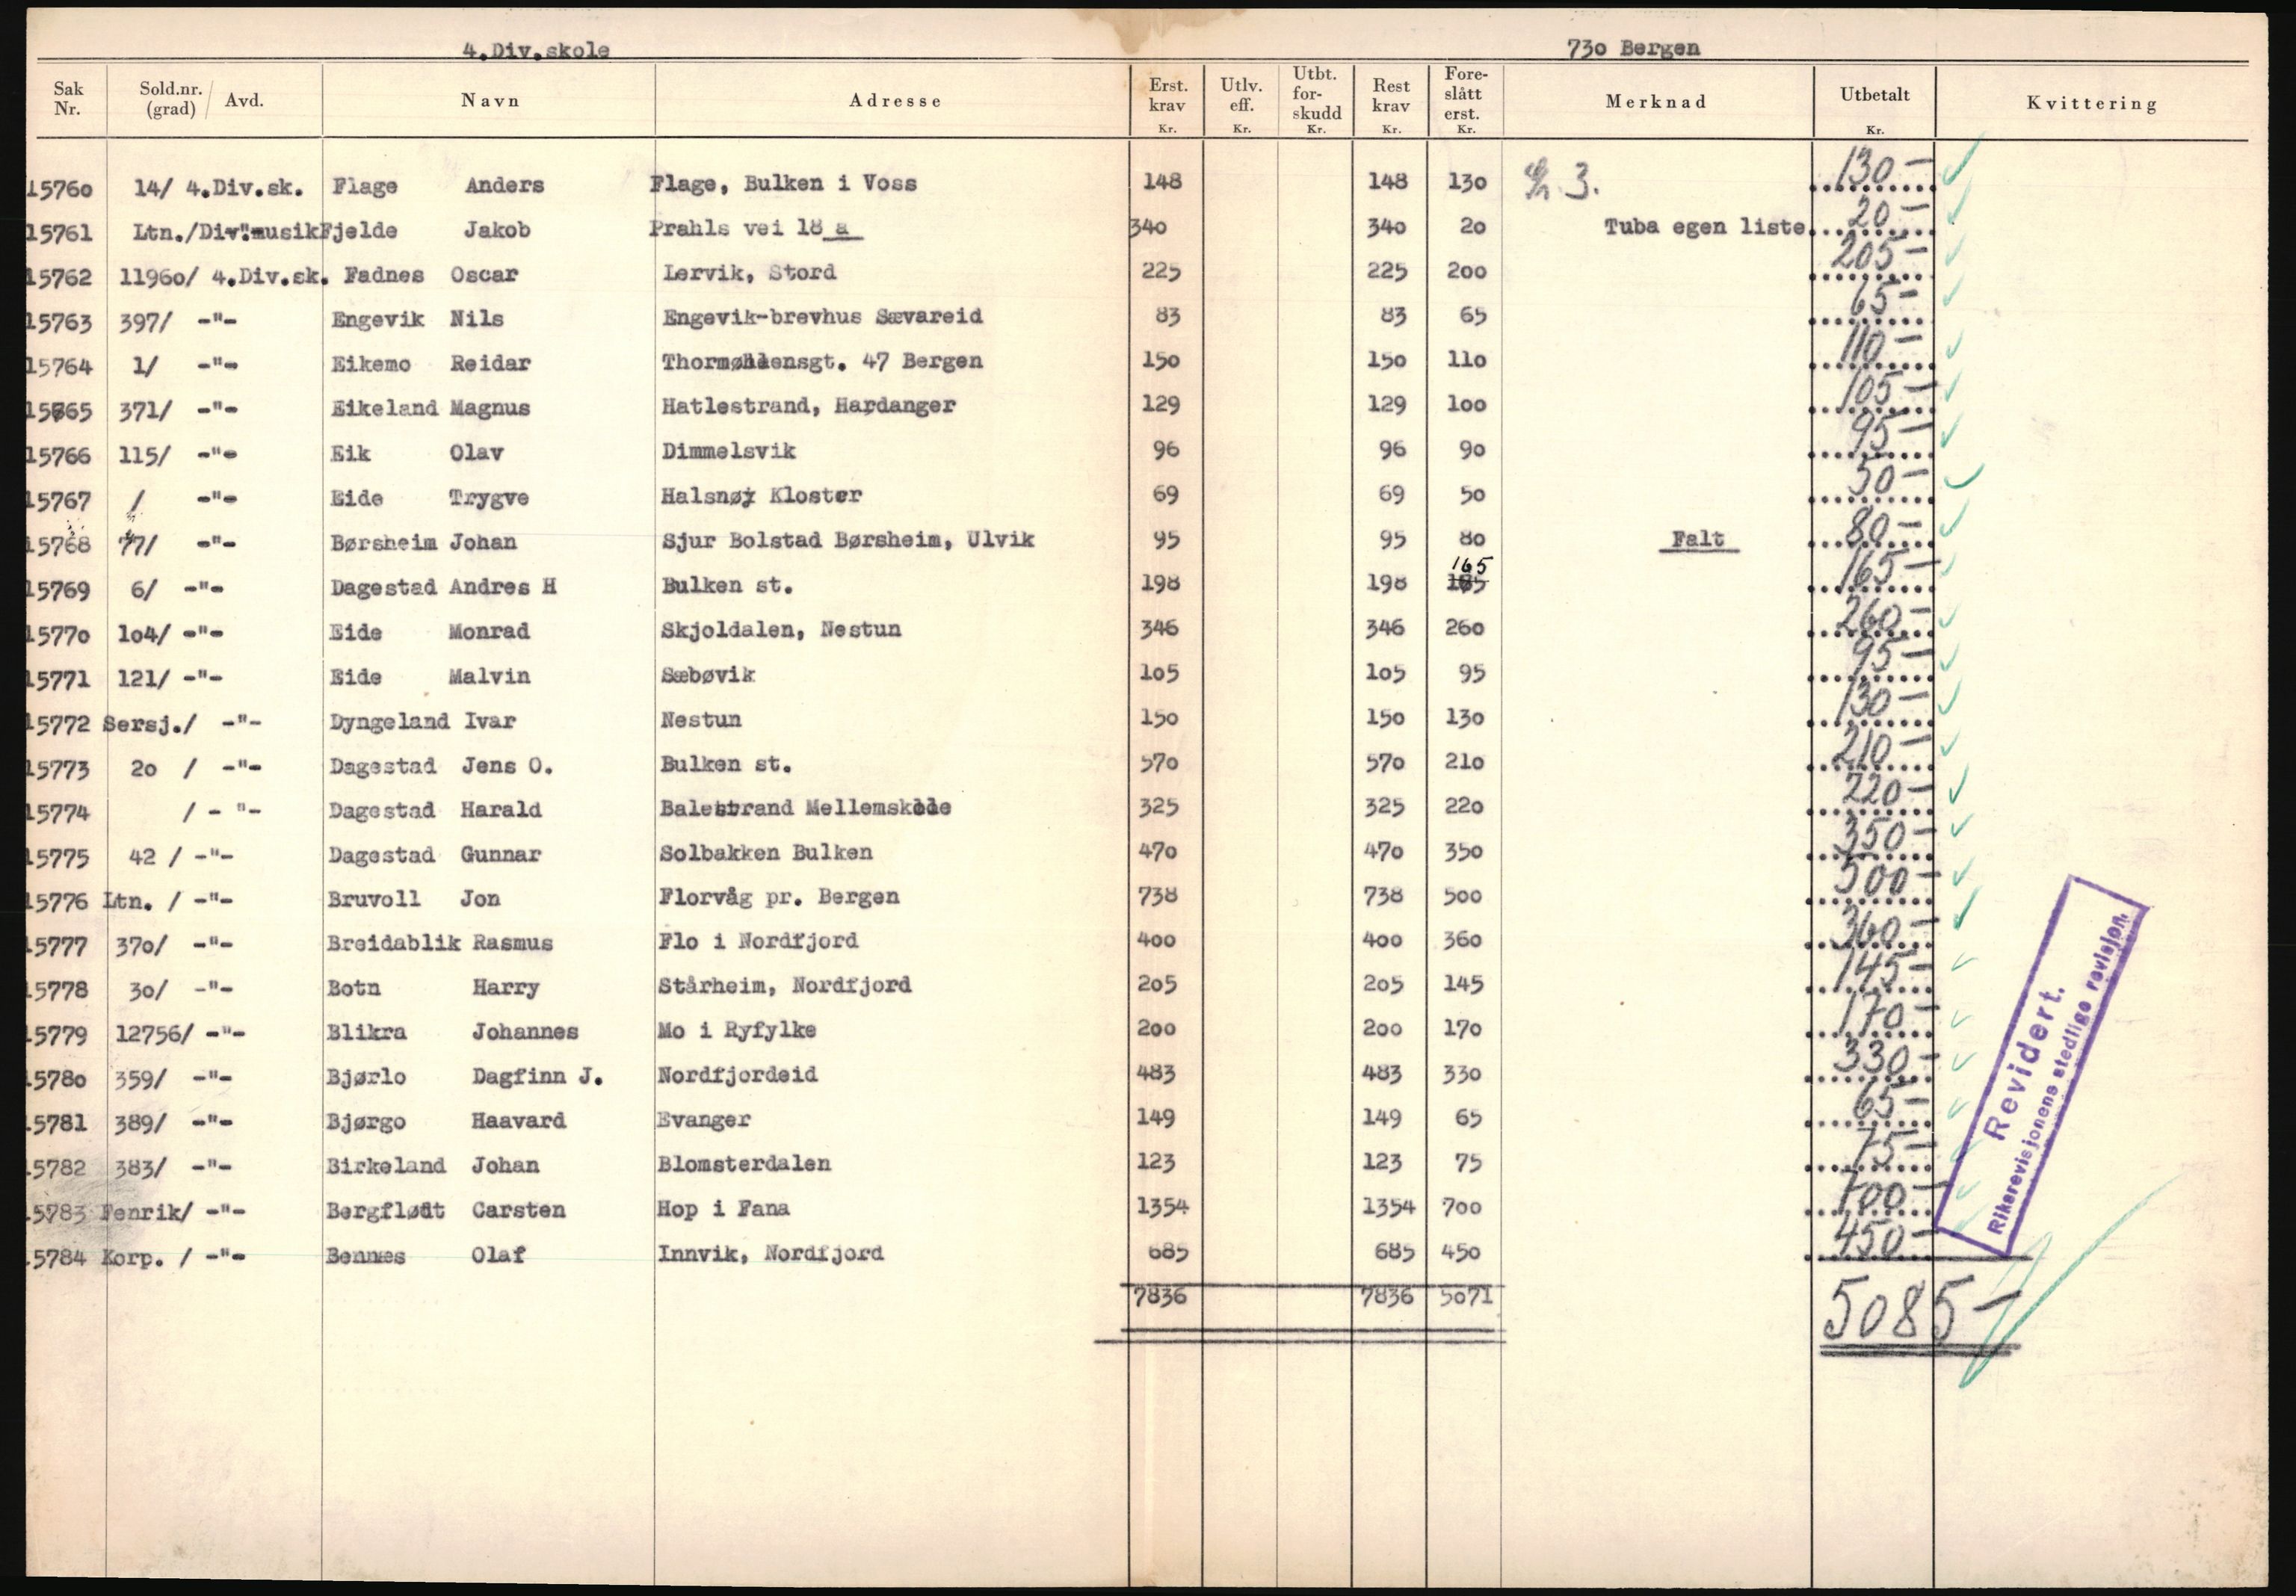 4.Div.skole 730 Bergen
Sak Nr. Sold.nr. (grad) / Avd. Navn Adresse Erst. krav Kr. Utlv. eff. Kr. Utbt. for- skudd Kr. Rest krav Kr. Fore- slått erst. Kr. Merknad Utbetalt Kr. Kvittering
15760 14/ 4.Div.sk. Flage Anders Flage, Bulken i Voss 148 148 130 3. 130-
15761 Ltn./Div"musik Fjelde Jakob Prahls vei 18 a 340 340 20 Tuba egen liste 20-
15762 11960/ 4.Div.sk. Fadnes Oscar Lervik, Stord 225 225 200 205-
15763 397/ -"- Engevik Nils Engevik-brevhus Sævareid 83 83 65 65-
15764 1/ -"- Eikemo Reidar Thormøhlensgt. 47 Bergen 150 150 110 110-
15765 371/ -"- Eikeland Magnus Hatlestrand, Hardanger 129 129 100 105-
15766 115/ -"- Eik Olav Dimmelsvik 96 96 90 95-
15767 / -"- Eide Trygve Halsnøy Kloster 69 69 50 50-
15768 77/ -"- Børsheim Johan Sjur Bolstad Børsheim, Ulvik 95 95 80 Falt 80-
15769 6/ -"- Dagestad Andres H Bulken st. 198 198 165 165-
15770 104/ -"- Eide Monrad Skjoldalen, Nestun 346 346 260 260-
15771 121/ -"- Eide Malvin Sæbøvik 105 105 95 95-
15772 Sersj./ -"- Dyngeland Ivar Nestun 150 150 130 130-
15773 20 / -"- Dagestad Jens O. Bulken st. 570 570 210 210-
15774 / - "- Dagestad Harald Balestrand Mellemskole 325 325 220 220-
15775 42 / -"- Dagestad Gunnar Solbakken Bulken 470 470 350 350-
15776 Ltn. / -"- Bruvoll Jon Florvåg pr. Bergen 738 738 500 500-
15777 370/ -"- Breidablik Rasmus Flo i Nordfjord 400 400 360 360-
15778 30/ -"- Botn Harry Stårheim, Nordfjord 205 205 145 145-
15779 12756/ -"- Blikra Johannes Mo i Ryfylke 200 200 170 170-
15780 359/ -"- Bjørlo Dagfinn J. Nordfjordeid 483 483 330 330-
15781 389/ -"- Bjørgo Haavard Evanger 149 149 65 65-
15782 383/ -"- Birkeland Johan Blomsterdalen 123 123 75 75-
15783 Fenrik/ -"- Bergflødt Carsten Hop i Fana 1354 1354 700 700-
15784 Korp. / -"- Bennes Olaf Innvik, Nordfjord 685 685 450 450-
7836 7836 5071 5085-
Revidert.
Riksrevisjonens stedlige revisjon.